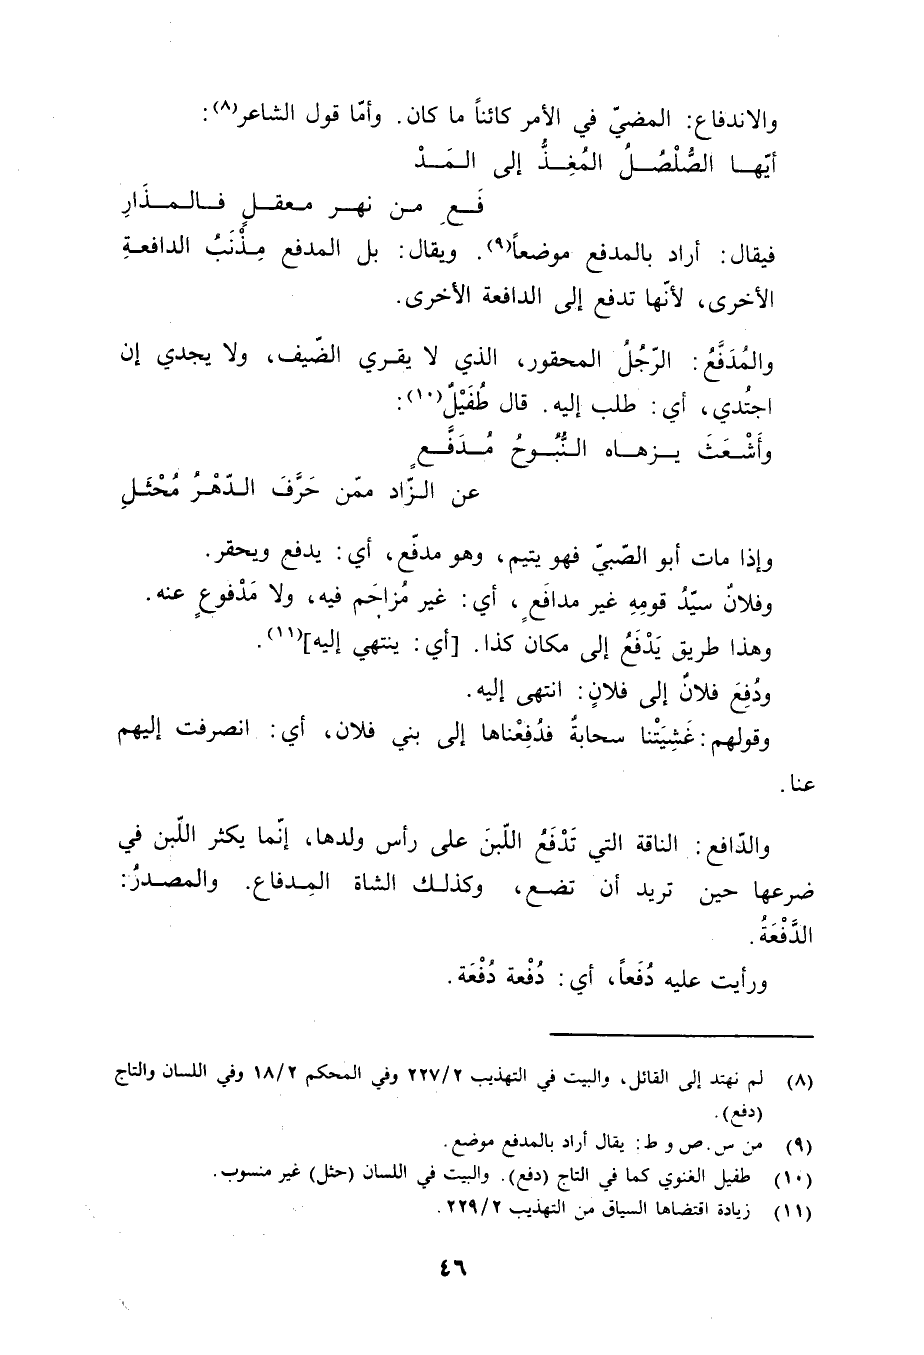 والاندفاع: المضيّ في الأمر كائناً ما كان. وأمّا قول الشاعر(٨):
أيّهـا الصُّلْصُـلُ المُغِـذُّ إلى المَـدْ
فَـعِ مـن نهـر معقـلٍ فـالـمـذَارِ
فيقال: أراد بالمدفع موضعاً(٩). ويقال: بل المدفع مِذْنَبُ الدافعـةِ
الأخرى، لأنّها تدفع إلى الدافعة الأخرى.
والمُدَفَّعُ: الرّجُلُ المحقور، الذي لا يقـري الضّيف، ولا يجدي إن
اجتُدي، أي: طلب إليه. قال طُفَيْلٌ(١٠):
وأَشْـعَـثَ يـزهـاه النُّبُـوحُ مُـدَفَّـعٍ
عن الـزّاد ممّن حَرَّفَ الـدّهْـرُ مُحْثَـلِ
وإذا مات أبو الصّبيّ فهو يتيم، وهو مدفّع، أي: يدفع ويحقر.
وفلانٌ سيّدُ قومِهِ غير مدافَعٍ، أي: غير مُزاحَمٍ فيه، ولا مَدْفوعٍ عنه.
وهذا طريق يَدْفَعُ إلى مكان كذا. [أي: ينتهي إليه](١١).
ودُفِعَ فلانٌ إلى فلانٍ: انتهى إليه.
وقولهم: غَشِيَتْنا سحابةٌ فدُفِعْناها إلى بني فلان، أي: انصرفت إليهم
عنا.
والدّافع: الناقة التي تَدْفَعُ اللّبنَ على رأس ولدها، إنّما يكثر اللّبن في
ضرعها حين تريد أن تضـع، وكذلـك الشاة المِـدفاع. والمصـدرُ:
الدَّفْعَةُ.
ورأيت عليه دُفَعاً، أي: دُفْعة دُفْعَة.
(٨) لم نهتد إلى القائل، والبيت في التهذيب ٢/٢٢٧ وفي المحكم ٢/١٨ وفي اللسان والتاج
(دفع).
(٩) من س. ص و ط: يقال أراد بالمدفع موضع.
(١٠) طفيل الغنوي كما في التاج (دفع). والبيت في اللسان (حثل) غير منسوب.
(١١) زيادة اقتضاها السياق من التهذيب ٢/٢٢٩.
٤٦